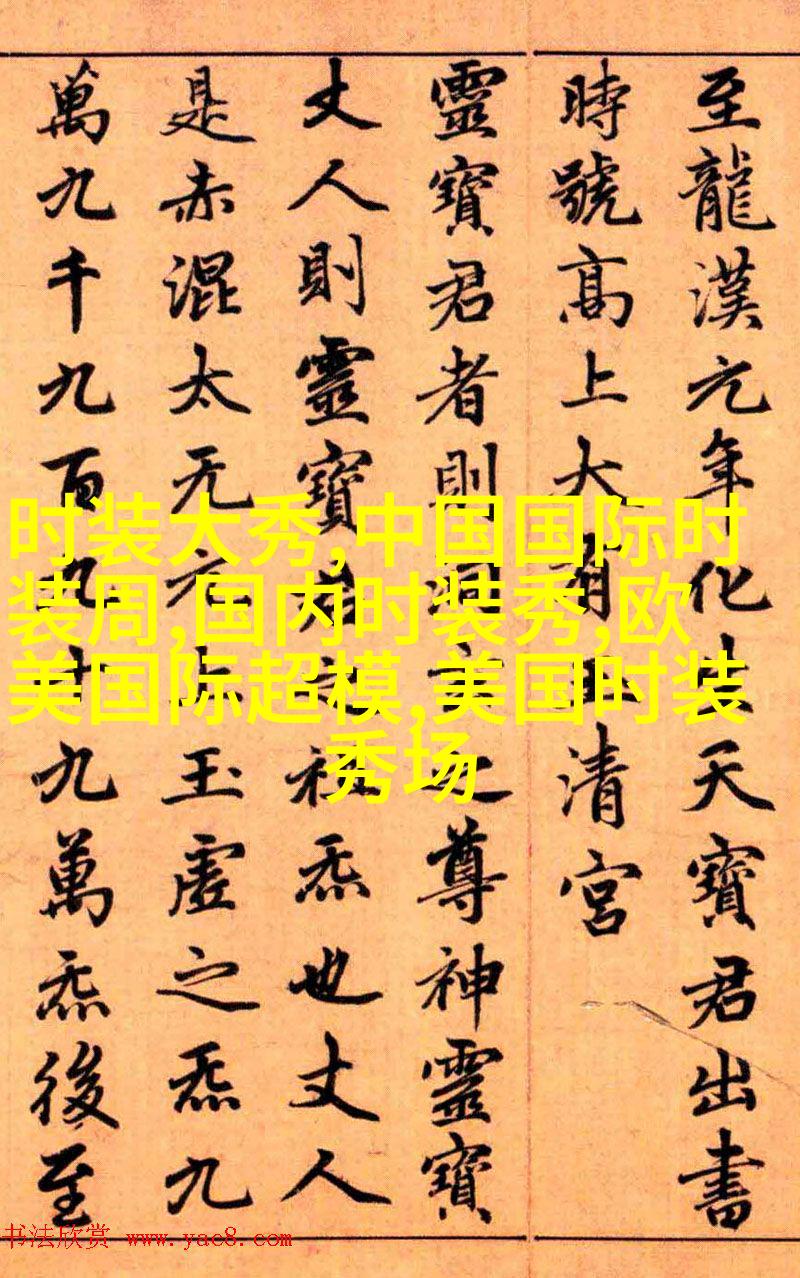 至龍漢元年化生天寶君出書
時號髙上大有玉清宮
靈寶君者則洞玄之尊神靈寶
丈人則靈寶君之祖炁也丈人
是赤混太无元上玉虛之炁九
萬九千九百九十九萬炁後至
时装大秀,中国国际时
装周,国内时装秀,欧
美国际超模,美国时装
秀场
书法欣赏 www.yac8.com